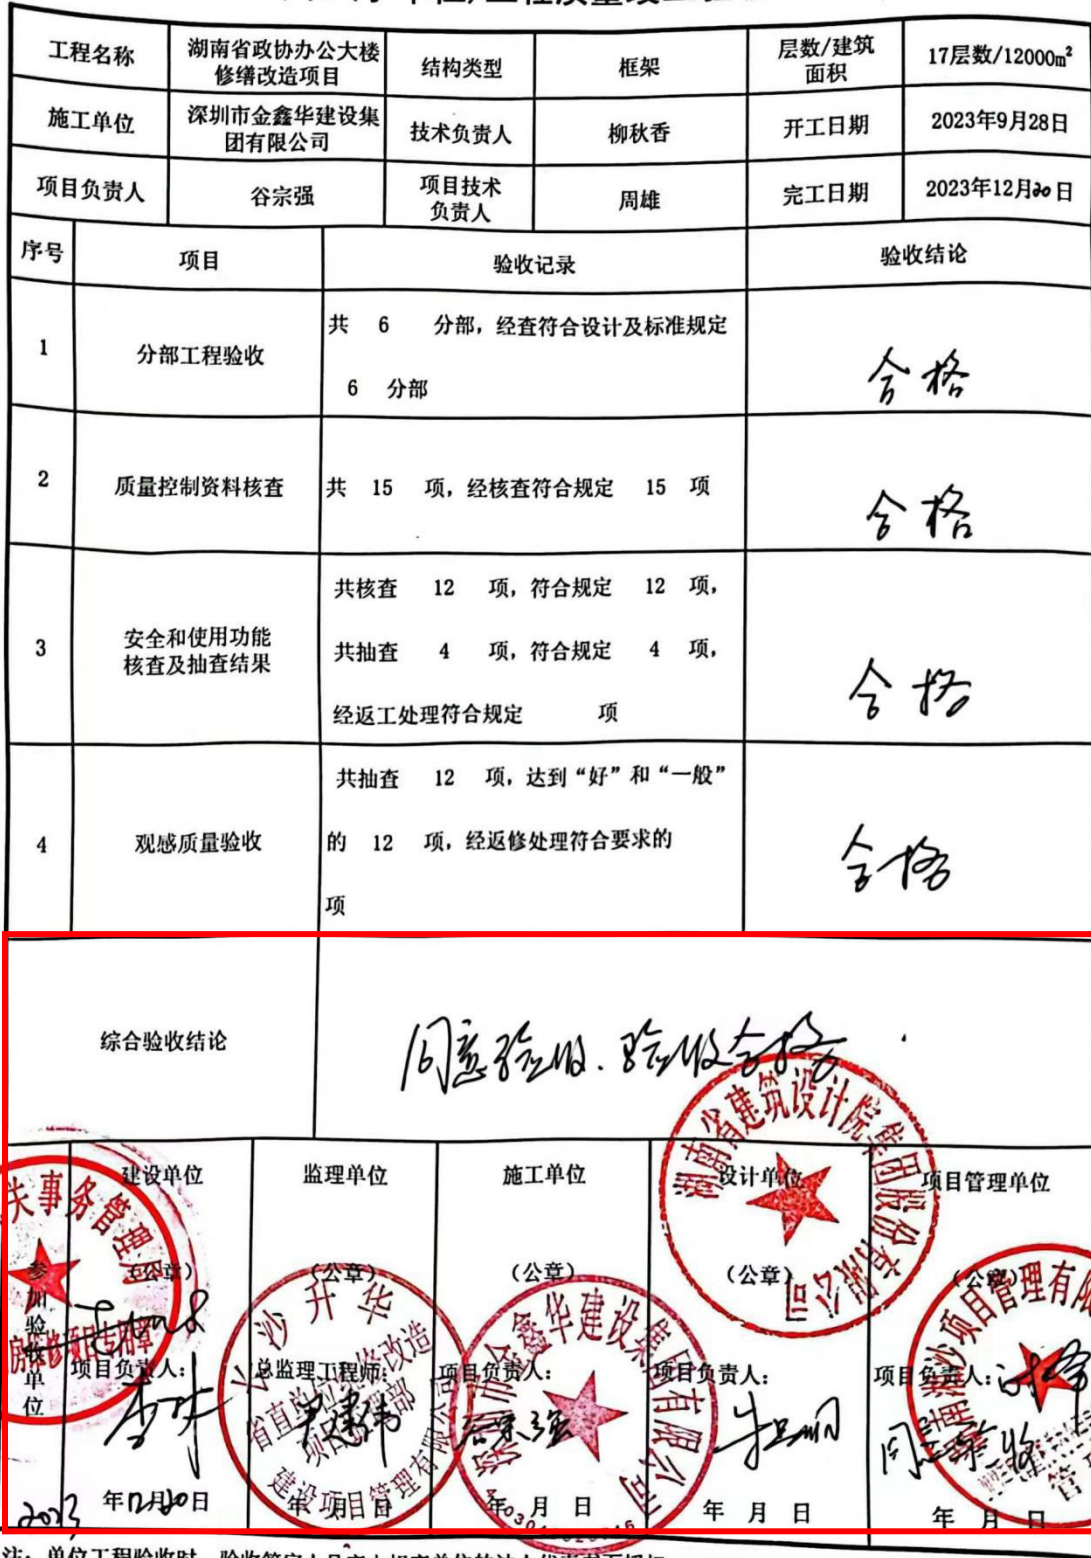 工程名称 湖南省政协办公大楼修缮改造项目 结构类型 框架 层数/建筑面积 17层数/12000m²
施工单位 深圳市金鑫华建设集团有限公司 技术负责人 柳秋香 开工日期 2023年9月28日
项目负责人 谷宗强 项目技术负责人 周雄 完工日期 2023年12月20日
序号 项目 验收记录 验收结论
1 分部工程验收 共 6 分部，经查符合设计及标准规定
6 分部
合格
2 质量控制资料核查 共 15 项，经核查符合规定 15 项
合格
3 安全和使用功能核查及抽查结果 共核查 12 项，符合规定 12 项，
共抽查 4 项，符合规定 4 项，
经返工处理符合规定 项
合格
4 观感质量验收 共抽查 12 项，达到“好”和“一般”
的 12 项，经返修处理符合要求的
项
合格
综合验收结论 同意验收.验收合格
参加验收单位
建设单位 监理单位 施工单位 设计单位 项目管理单位
（公章） （公章） （公章） （公章） （公章）
项目负责人： 总监理工程师： 项目负责人： 项目负责人： 项目负责人：
谷宗强
同意验收
2023年12月20日 年 月 日 年 月 日 年 月 日 年 月 日
湖南省建筑设计院集团股份有限公司
深圳市金鑫华建设集团有限公司
长沙升华建设项目管理有限公司